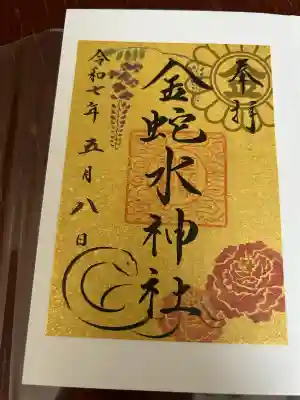 奉拝
金蛇水神社
令和七年
五月八日